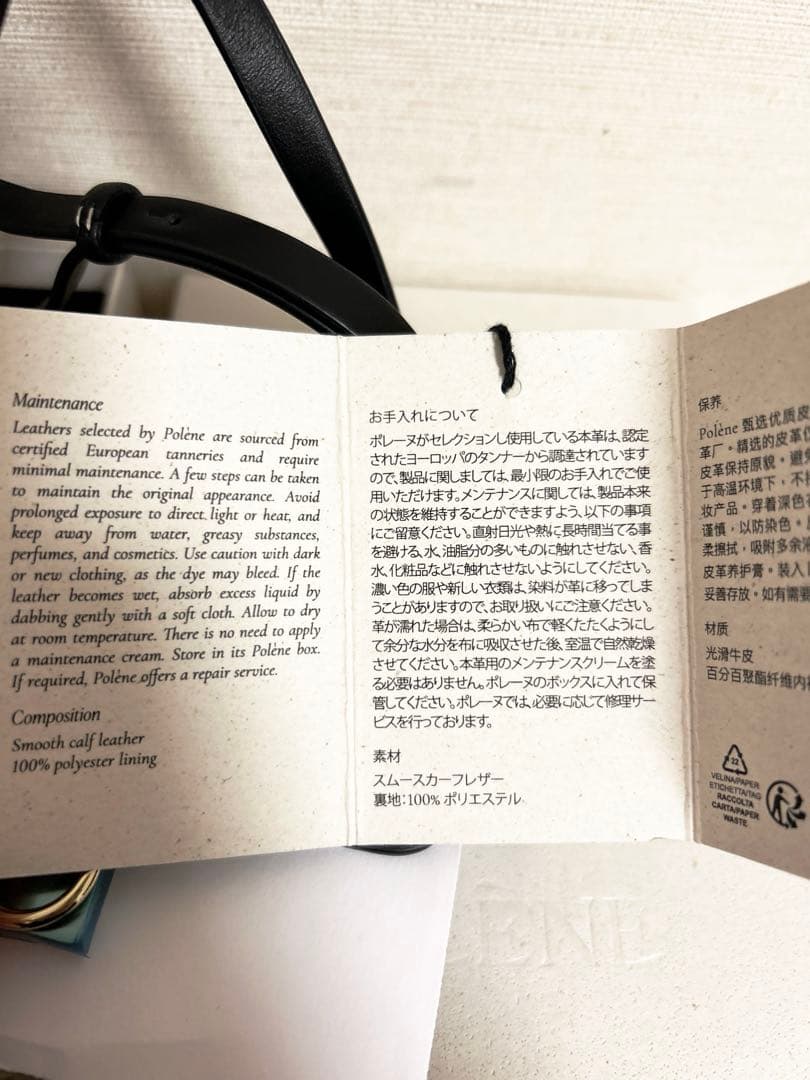 Maintenance
Leathers selected by Polène are sourced from
certified European tanneries and require
minimal maintenance. A few steps can be taken
to maintain the original appearance. Avoid
prolonged exposure to direct light or heat, and
keep away from water, greasy substances,
perfumes, and cosmetics. Use caution with dark
or new clothing, as the dye may bleed. If the
leather becomes wet, absorb excess liquid by
dabbing gently with a soft cloth. Allow to dry
at room temperature. There is no need to apply
a maintenance cream. Store in its Polène box.
If required, Polène offers a repair service.
Composition
Smooth calf leather
100% polyester lining
お手入れについて
ポレーヌがセレクションし使用している本革は、認定
されたヨーロッパのタンナーから調達されています
ので、製品に関しましては、最小限のお手入れでご使
用いただけます。メンテナンスに関しては、製品本来
の状態を維持することができますよう、以下の事項
にご留意ください。直射日光や熱に長時間当てる事
を避ける、水、油脂分の多いものに触れさせない、香
水、化粧品などに触れさせないようにしてください。
濃い色の服や新しい衣類は、染料が革に移ってしま
うことがありますので、お取り扱いにご注意ください。
革が濡れた場合は、柔らかい布で軽くたたくようにし
て余分な水分を布に吸収させた後、室温で自然乾燥
させてください。本革用のメンテナンスクリームを塗
る必要はありません。ポレーヌのボックスに入れて保
管してください。ポレーヌでは、必要に応じて修理サー
ビスを行っております。
素材
スムースカーフレザー
裏地:100% ポリエステル
保养
Polène 甄选优质皮
革厂。精选的皮革仅
皮革保持原貌。避免
于高温环境下，不接
妆产品。穿着深色
谨慎，以防染色。
柔擦拭，吸附多余液
皮革养护膏。装入
妥善存放。如有需要
材质
光滑牛皮
百分百聚酯纤维内衬
22
VELINA/PAPER
ETICHETTA/TAG
RACCOLTA
CARTA/PAPER
WASTE
LENE